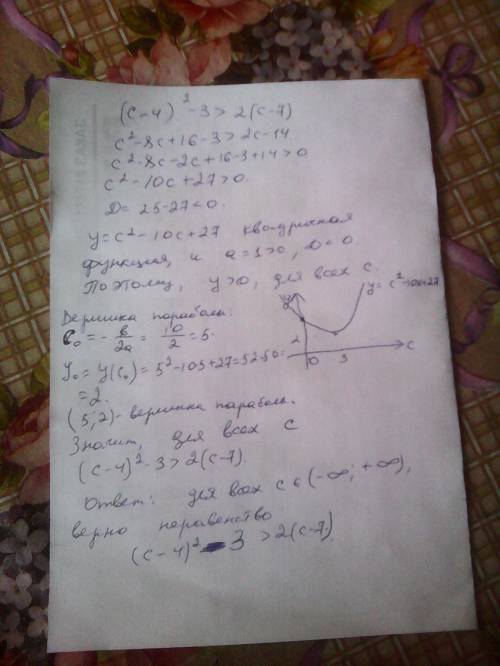 (c-4)² -3 > 2(c-7)
c²-8c+16-3 > 2c-14
c²-8c-2c+16-3+14>0
c²-10c+27>0.
D= 25-27<0.
y=c²-10c+27 квадричная
функция, и a=1>0, D<0
Поэтому, y>0, для всех c.
y
y=c²-10c+27
2
0
5
c
Вершина параболы:
c₀=-b/2a = 10/2 = 5.
y₀=y(c₀)=5²-10·5+27=52-50=
=2.
(5;2)- вершина параболы.
Значит, для всех c
(c-4)²-3>2(c-7).
Ответ: для всех c ∈ (-∞; +∞),
верно неравенство
(c-4)²-3 >2(c-7)